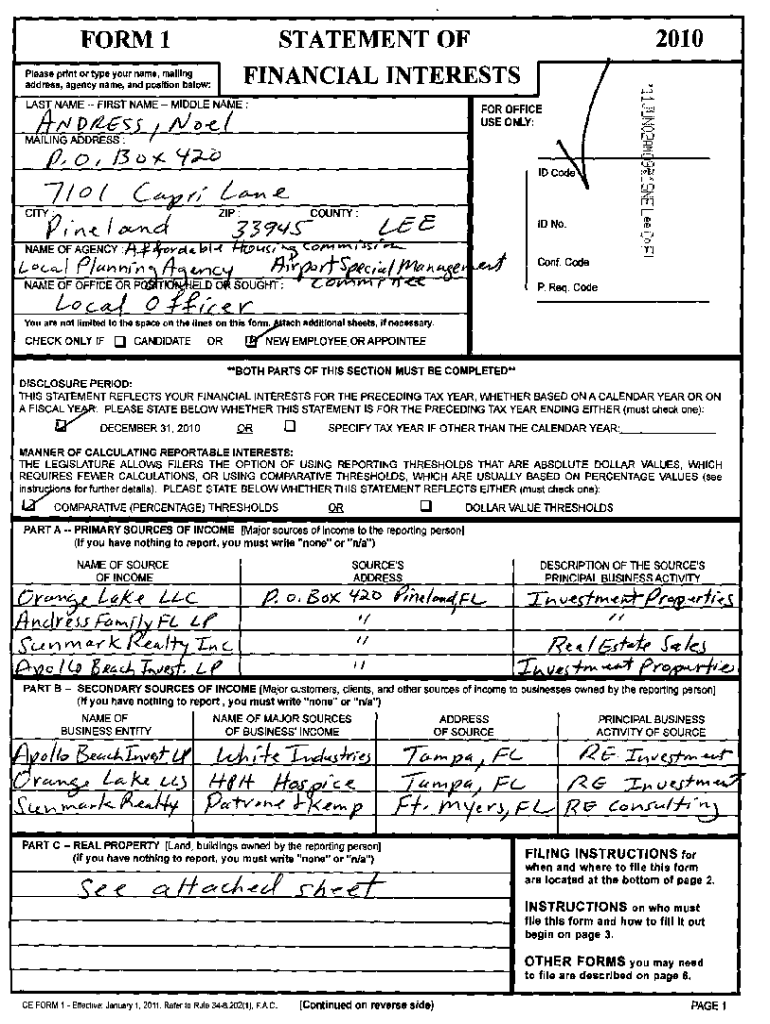 FORM 1 STATEMENT OF 2010
FINANCIAL INTERESTS
Please print or type your name, mailing
address, agency name, and position below:
LAST NAME -- FIRST NAME -- MIDDLE NAME :
ANDRESS, Noel
MAILING ADDRESS :
P.O. Box 420
7101 Capri Lane
CITY : ZIP : COUNTY :
Pineland 33945 LEE
NAME OF AGENCY : Affordable Housing Commission
Local Planning Agency Airport Special Management
Committee
NAME OF OFFICE OR POSITION HELD OR SOUGHT :
Local Officer
You are not limited to the space on the lines on this form. Attach additional sheets, if necessary.
CHECK ONLY IF ☐ CANDIDATE OR ☑ NEW EMPLOYEE OR APPOINTEE
FOR OFFICE
USE ONLY:
ID Code
ID No.
Conf. Code
P. Req. Code
**BOTH PARTS OF THIS SECTION MUST BE COMPLETED**
DISCLOSURE PERIOD:
THIS STATEMENT REFLECTS YOUR FINANCIAL INTERESTS FOR THE PRECEDING TAX YEAR, WHETHER BASED ON A CALENDAR YEAR OR ON
A FISCAL YEAR. PLEASE STATE BELOW WHETHER THIS STATEMENT IS FOR THE PRECEDING TAX YEAR ENDING EITHER (must check one):
☑ DECEMBER 31, 2010 OR ☐ SPECIFY TAX YEAR IF OTHER THAN THE CALENDAR YEAR:
MANNER OF CALCULATING REPORTABLE INTERESTS:
THE LEGISLATURE ALLOWS FILERS THE OPTION OF USING REPORTING THRESHOLDS THAT ARE ABSOLUTE DOLLAR VALUES, WHICH
REQUIRES FEWER CALCULATIONS, OR USING COMPARATIVE THRESHOLDS, WHICH ARE USUALLY BASED ON PERCENTAGE VALUES (see
instructions for further details). PLEASE STATE BELOW WHETHER THIS STATEMENT REFLECTS EITHER (must check one):
☑ COMPARATIVE (PERCENTAGE) THRESHOLDS OR ☐ DOLLAR VALUE THRESHOLDS
PART A -- PRIMARY SOURCES OF INCOME [Major sources of income to the reporting person]
(If you have nothing to report, you must write "none" or "n/a")
NAME OF SOURCE SOURCE'S DESCRIPTION OF THE SOURCE'S
OF INCOME ADDRESS PRINCIPAL BUSINESS ACTIVITY
Orange Lake LLC P.O. Box 420 Pineland, FL Investment Properties
Andress Family FL LP " "
Sunmark Realty Inc " Real Estate Sales
Apollo Beach Invest. LP " Investment Propertie
PART B -- SECONDARY SOURCES OF INCOME [Major customers, clients, and other sources of income to businesses owned by the reporting person]
(If you have nothing to report , you must write "none" or "n/a")
NAME OF NAME OF MAJOR SOURCES ADDRESS PRINCIPAL BUSINESS
BUSINESS ENTITY OF BUSINESS' INCOME OF SOURCE ACTIVITY OF SOURCE
Apollo Beach Invest LP White Industries Tampa, FL RE Investment
Orange Lake LLC HPH Hospice Tampa, FL RE Investment
Sunmark Realty Patrone & Kemp Ft. Myers, FL RE Consulting
PART C -- REAL PROPERTY [Land, buildings owned by the reporting person]
(If you have nothing to report, you must write "none" or "n/a")
See attached sheet
FILING INSTRUCTIONS for
when and where to file this form
are located at the bottom of page 2.
INSTRUCTIONS on who must
file this form and how to fill it out
begin on page 3.
OTHER FORMS you may need
to file are described on page 6.
CE FORM 1 - Effective: January 1, 2011. Refer to Rule 34-8.202(1), F.A.C. (Continued on reverse side) PAGE 1